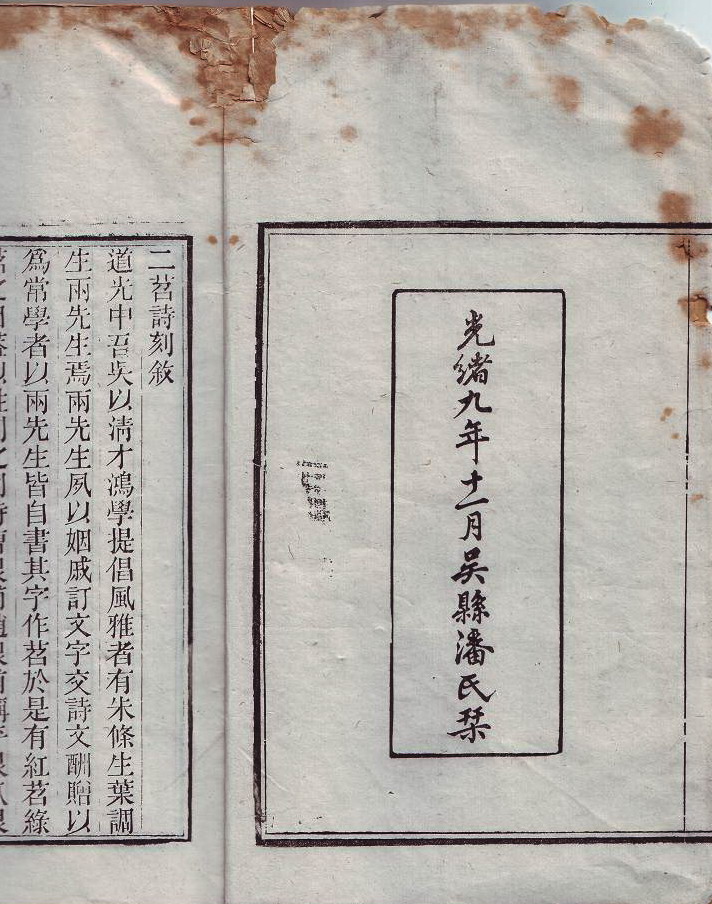 光緒九年十一月吳縣潘氏栞
二茗詩刻敘
道光中吾吳以淸才鴻學提倡風雅者有朱條生葉調
生兩先生焉兩先生夙以姻戚訂文字交詩文酬贈以
爲常學者以兩先生皆自書其字作茗於是有紅茗綠